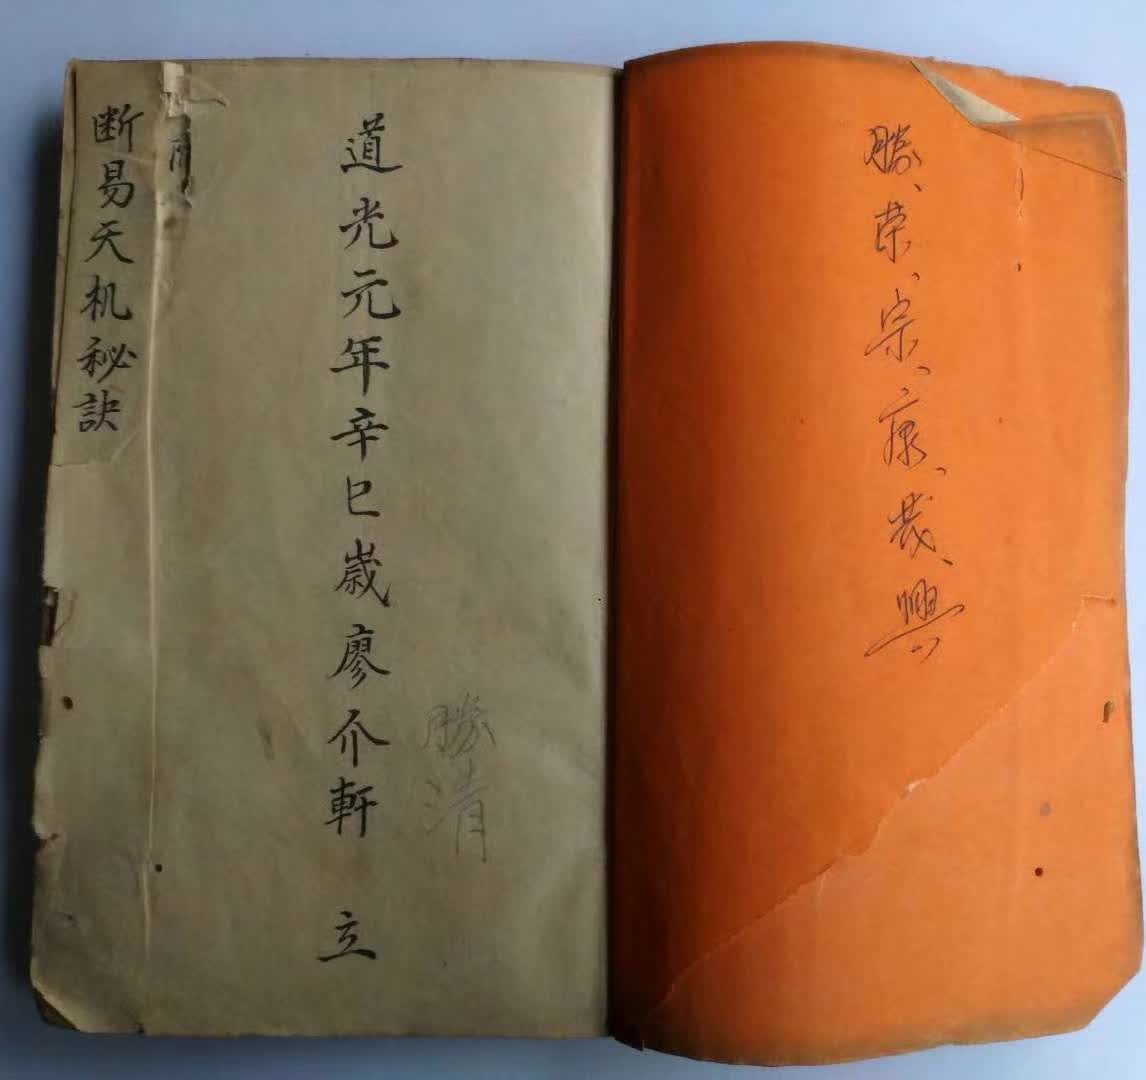 勝、荣、宗、康、哉、興
勝清
道光元年辛巳歲廖介軒 立
断易天机秘訣